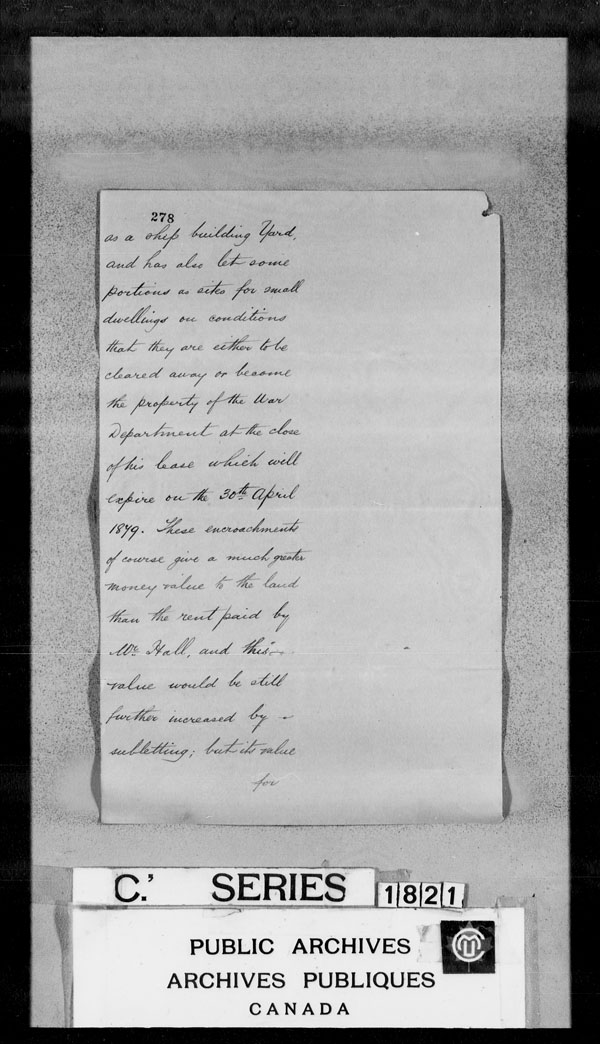 278
as a ship building Yard,
and has also let some
portions as sites for small
dwellings on conditions
that they are either to be
cleared away or become
the property of the War
Department at the close
of his lease which will
expire on the 30th April
1879. These encroachments
of course give a much greater
money value to the land
than the rent paid by
Mr. Hall, and this
value would be still
further increased by
subletting; but its value
for
C.' SERIES 1821
PUBLIC ARCHIVES
ARCHIVES PUBLIQUES
CANADA